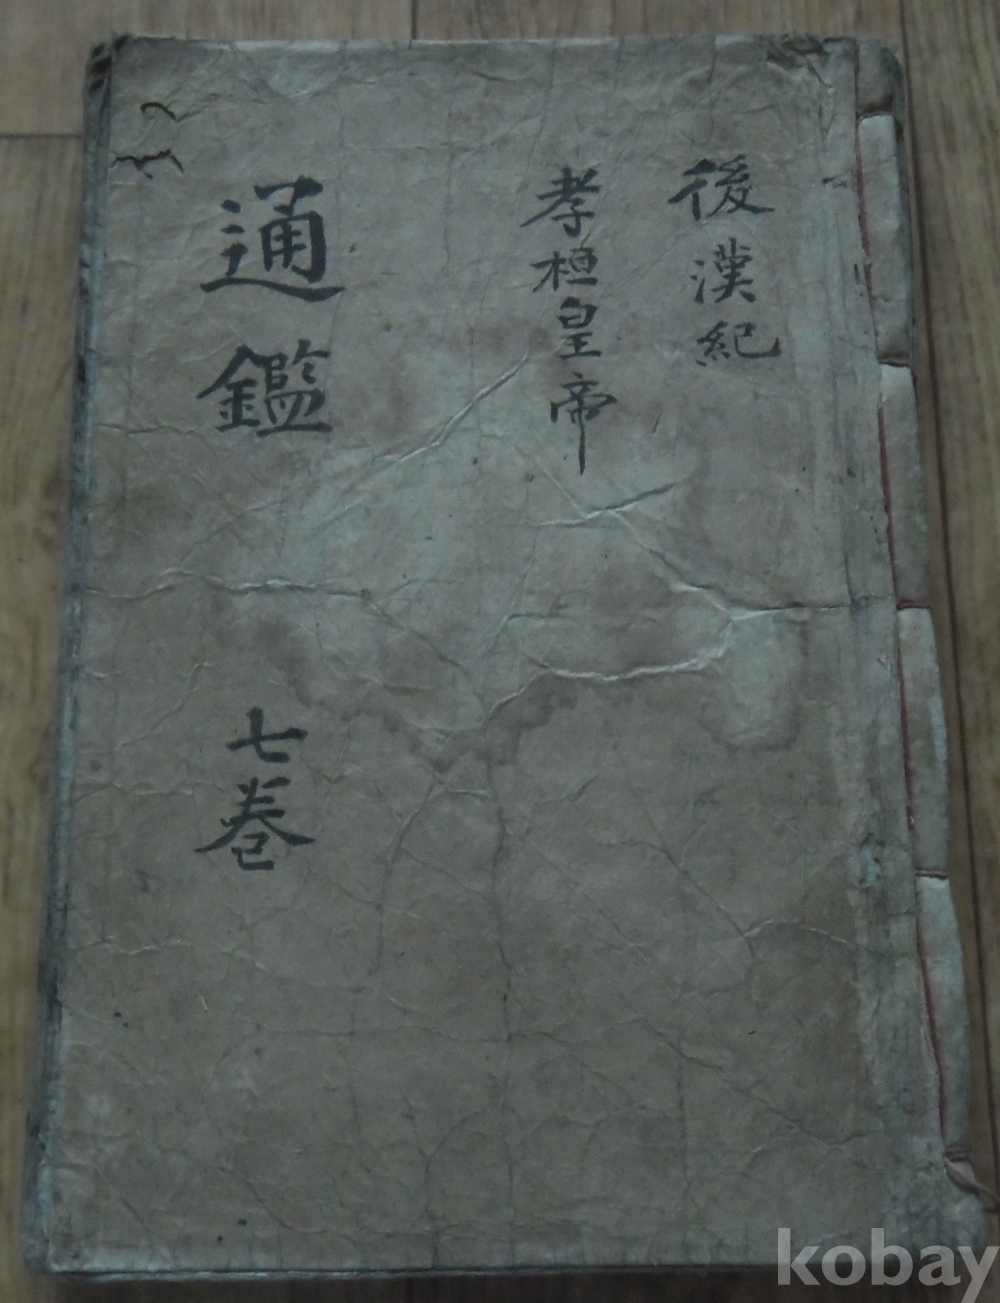 後漢紀
孝桓皇帝
通鑑 七巻
kobay